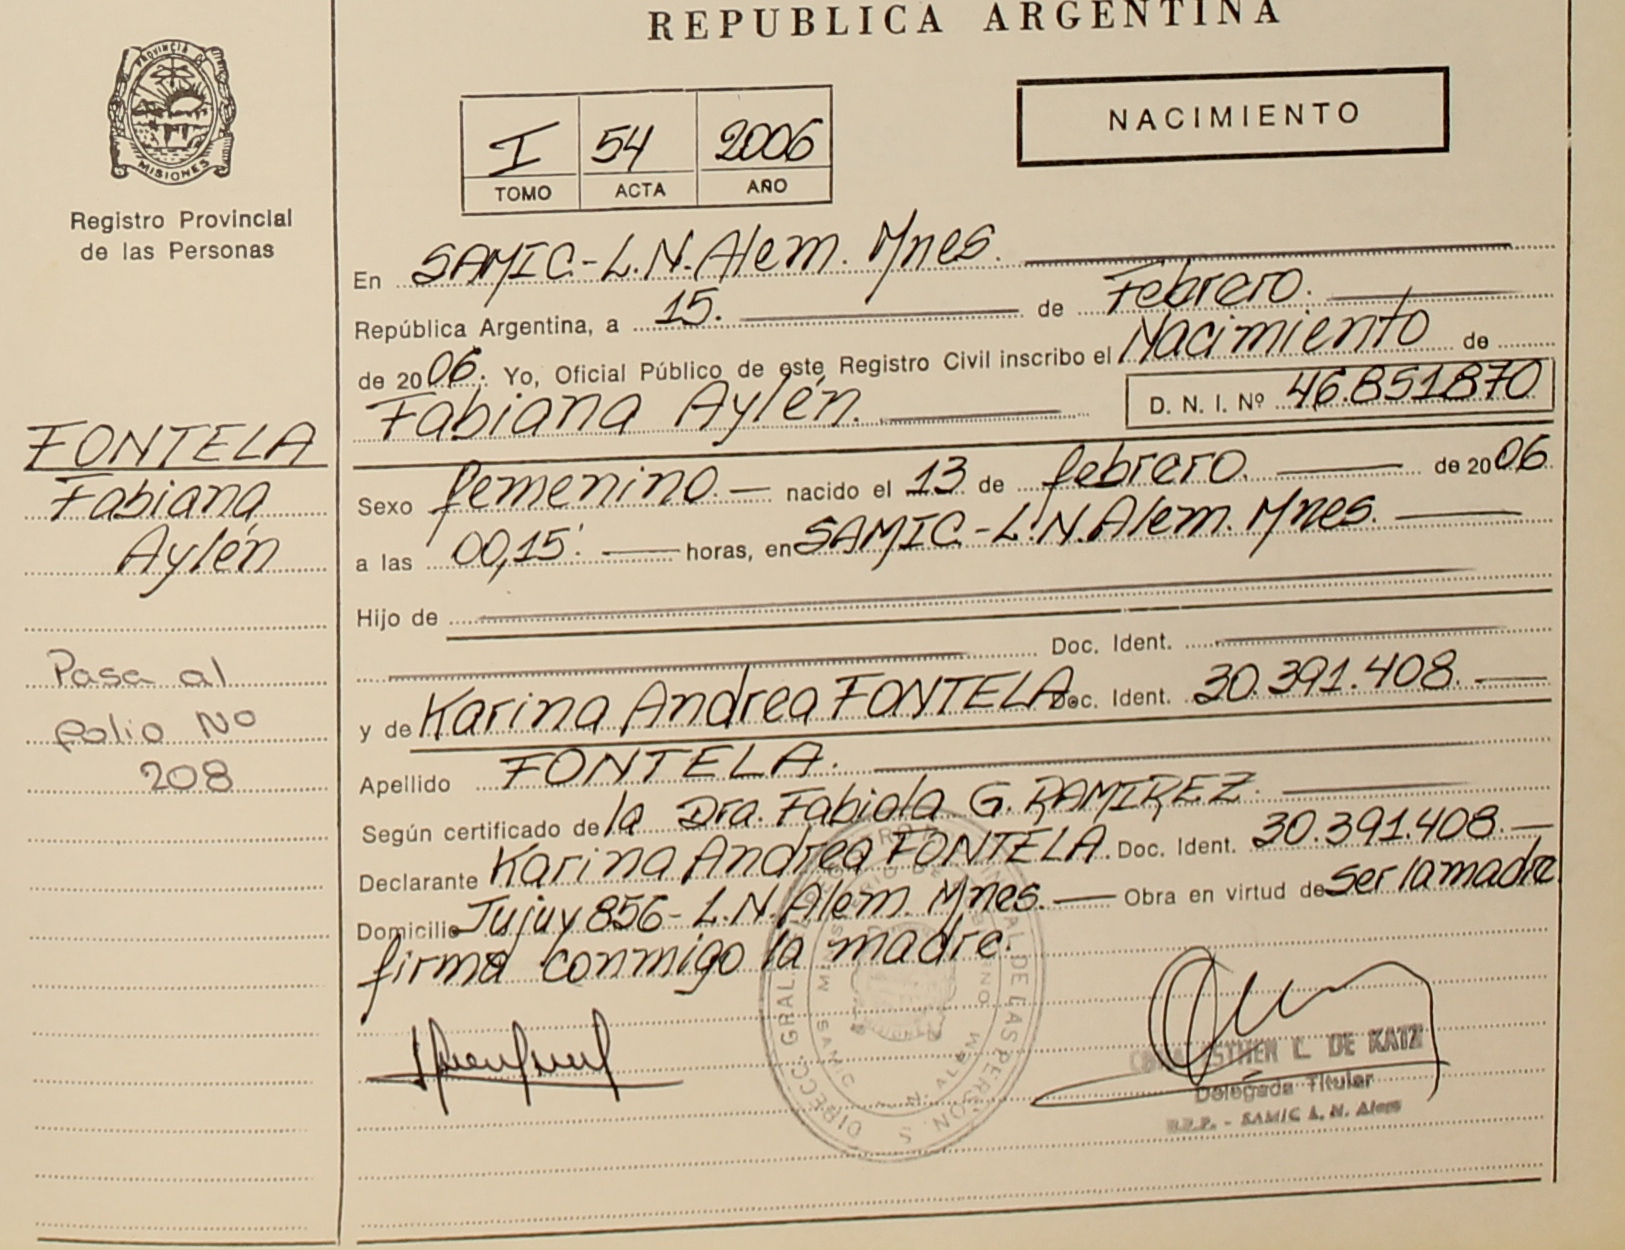 REPUBLICA ARGENTINA
PROVINCIA DE
MISIONES
Registro Provincial
de las Personas
I 54 2006
TOMO ACTA AÑO
NACIMIENTO
En SAMIC.-L.N.Alem. Mnes.
República Argentina, a 15. de Febrero.
de 2006. Yo, Oficial Público de este Registro Civil inscribo el Nacimiento de
Fabiana Aylén. D. N. I. Nº 46.851870
Sexo femenino.— nacido el 13 de febrero. de 2006
a las 00,15'. horas, en SAMIC.-L.N.Alem. Mnes.
Hijo de
Doc. Ident.
y de Karina Andrea FONTELA Doc. Ident. 30.391.408.
Apellido FONTELA.
Según certificado de la Dra. Fabiola G. RAMIREZ.
Declarante Karina Andrea FONTELA. Doc. Ident. 30.391.408.—
Domicilio Jujuy 856- L.N.Alem. Mnes.— Obra en virtud de ser la madre
firma conmigo la madre.
FONTELA
Fabiana
Aylén
Pasa al
folio Nº
208
ESTHER L. DE KATZ
Delegada Titular
R.P.P. - SAMIC L. N. Alem